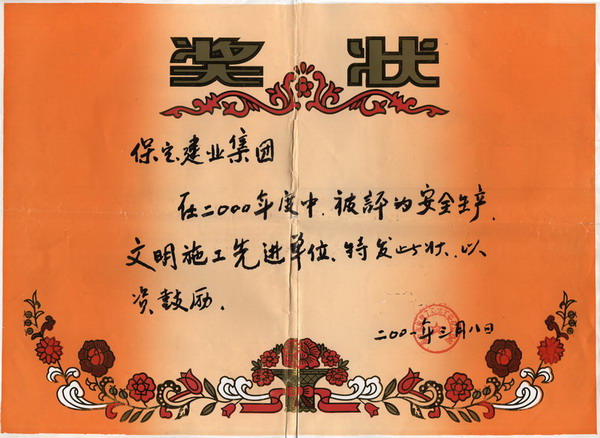 奖状
保定建业集团
在二〇〇〇年度中,被評为安全生产、
文明施工先进单位、特发此状、以
资鼓励.
二〇〇一年三月八日